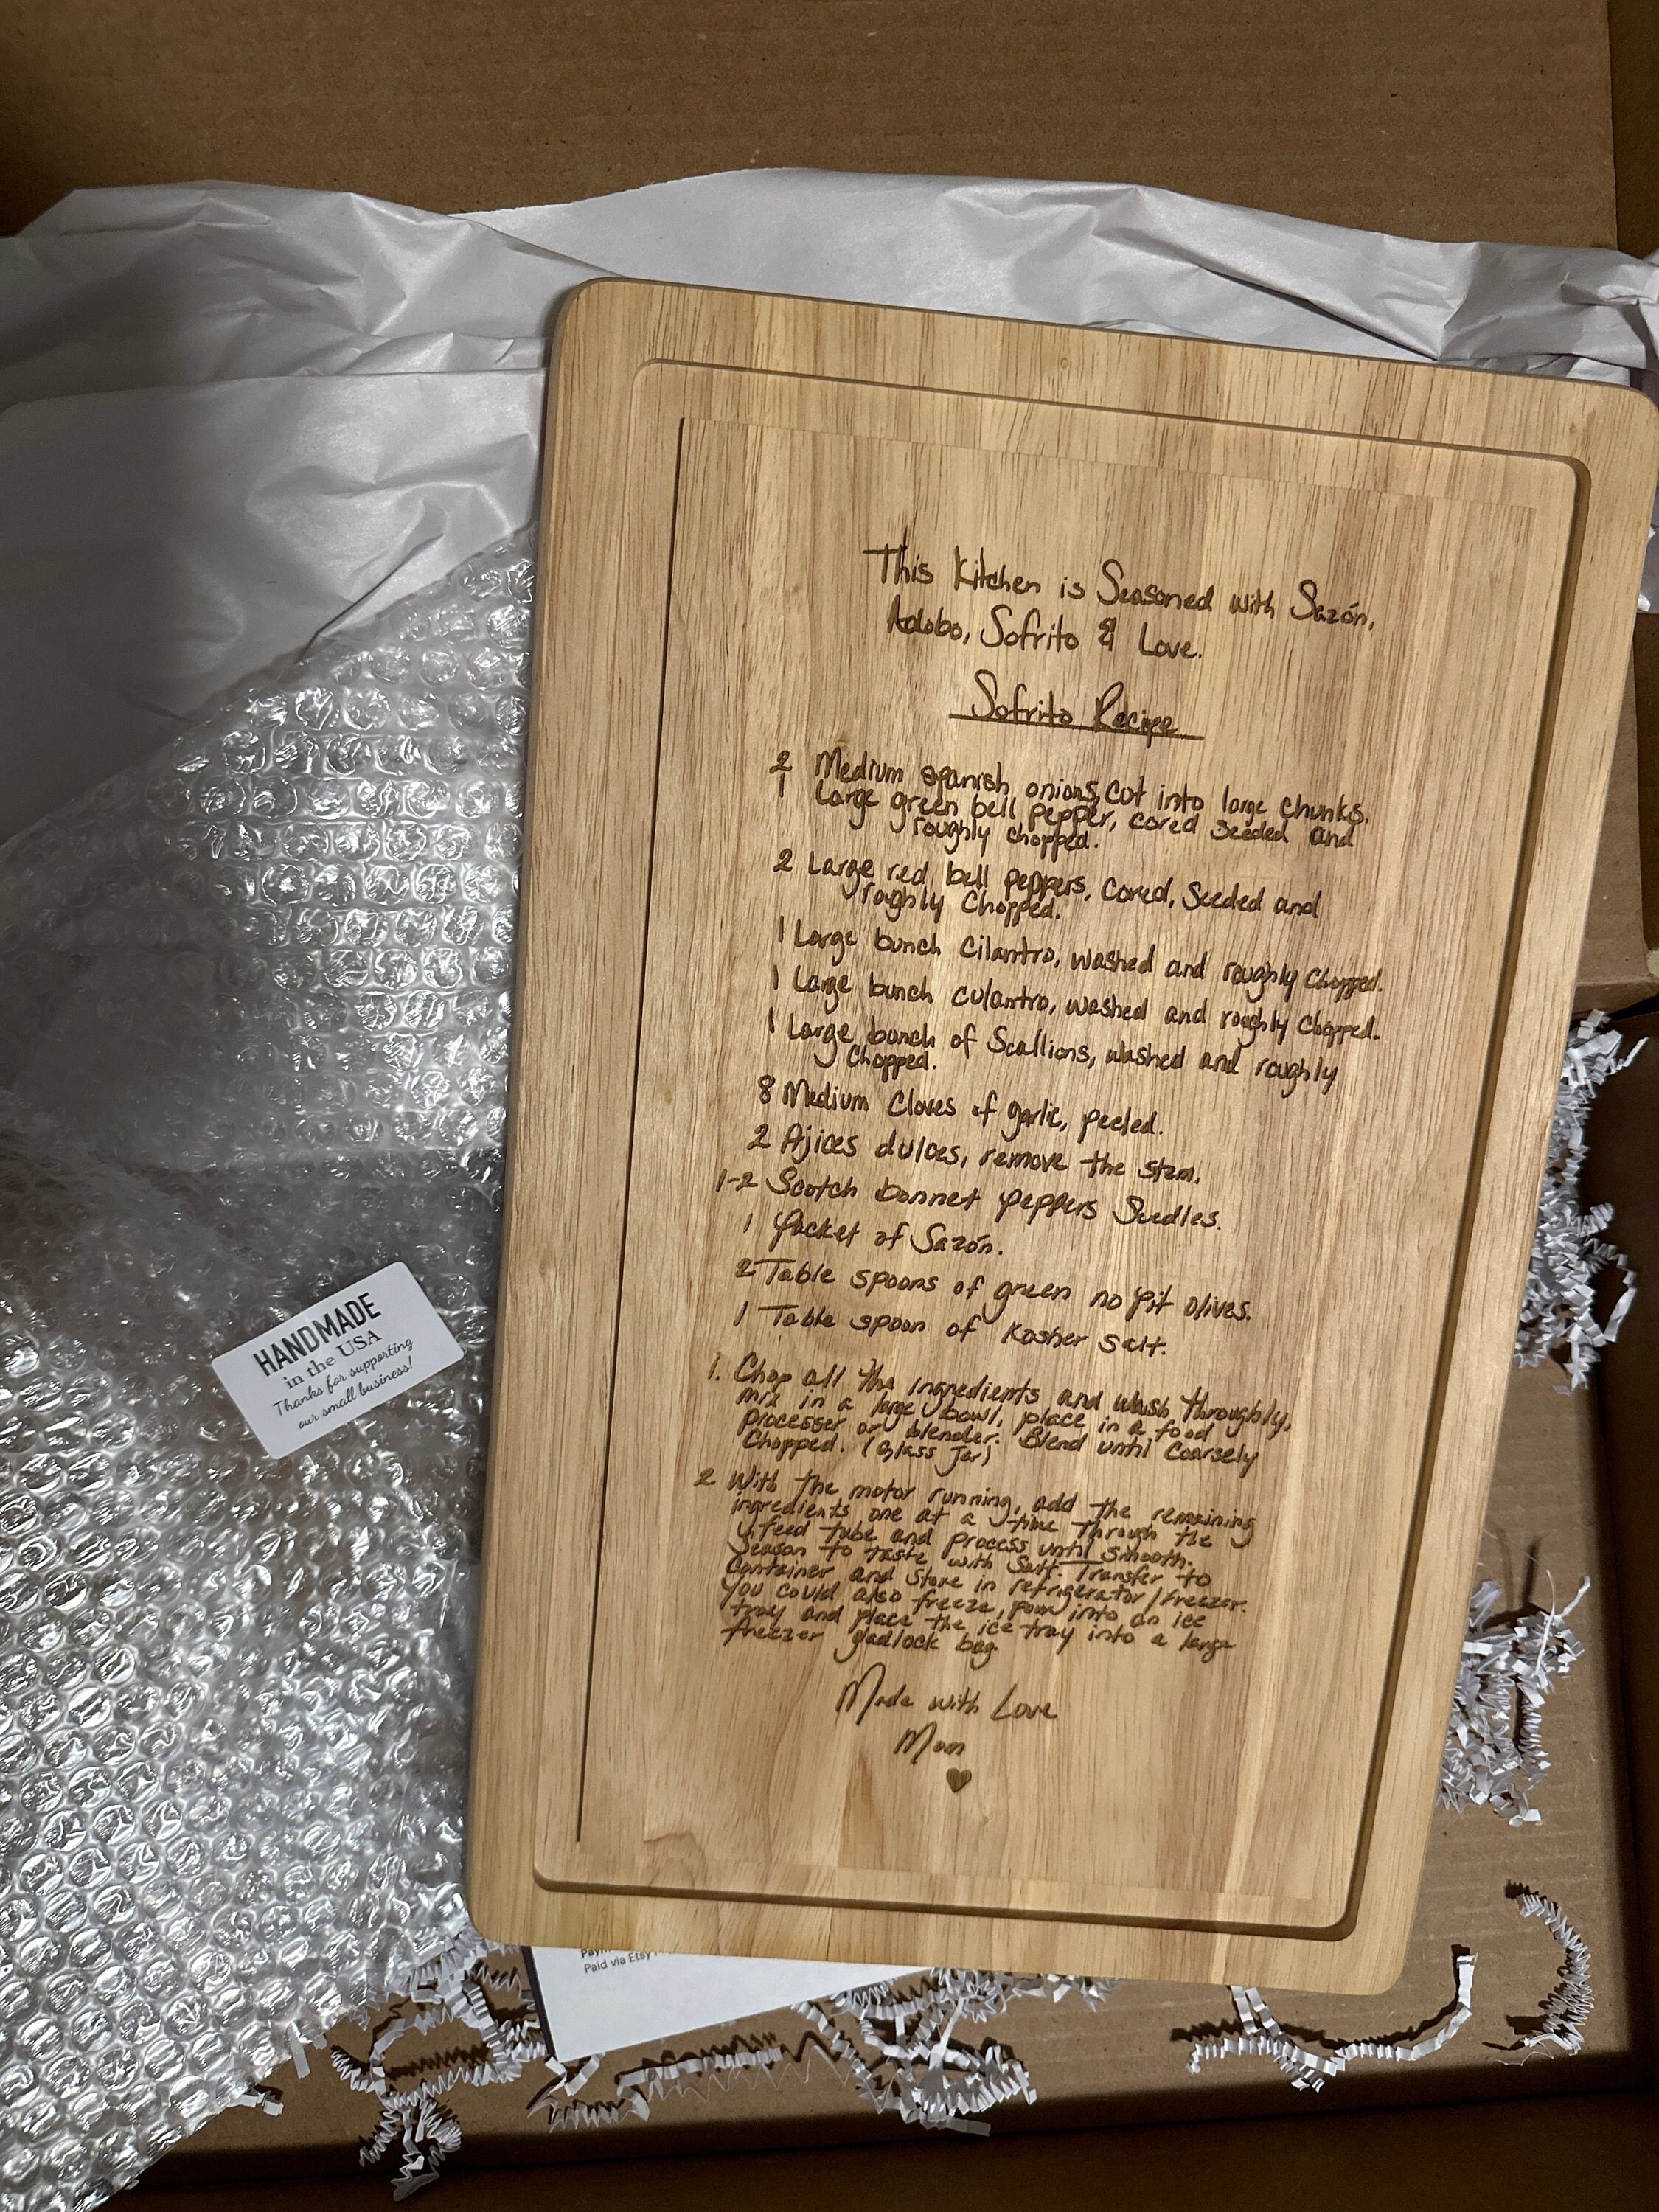 This Kitchen is Seasoned with Sazón,
Adobo, Sofrito & Love.
Sofrito Recipe
2 Medium spanish onions, cut into large chunks.
1 Large green bell pepper, cored seeded and
roughly chopped.
2 Large red bell peppers, cored, seeded and
roughly chopped.
1 Large bunch cilantro, washed and roughly chopped.
1 Large bunch culantro, washed and roughly chopped.
1 Large bunch of Scallions, washed and roughly
chopped.
8 Medium Cloves of garlic, peeled.
2 Ajices dulces, remove the stem.
1-2 Scotch bonnet peppers Seedles.
1 Packet of Sazón.
2 Table spoons of green no pit olives.
1 Table spoon of Kosher salt.
1. Chop all the ingredients and wash throughly,
mix in a large bowl, place in a food
processer or blender. Blend until Coarsely
Chopped. (Glass Jar)
2 With the motor running, add the remaining
ingredients one at a time through the
feed tube and process until smooth.
Season to taste with Salt. Transfer to
Container and store in refrigerator/freezer.
You could also freeze, pour into an ice
tray and place the ice tray into a large
freezer bag
Made with Love
Mom
HANDMADE
in the USA
Thanks for supporting
our small business!
Paid via Etsy